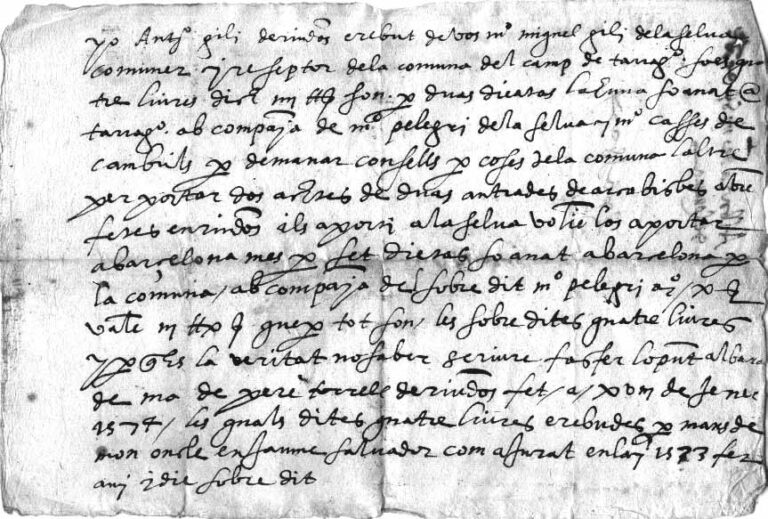 yo Antº gili deriudoms erebut de vos mº miquel gili dela selva
comuner y reseptor dela comuna del camp de taragº so es qua
tre liures dich iiii ll son p duas dietas la una so anat @
tarragº ab compaia de mº pelegri dela selva y mº casses de
cambrils p demanar consells p coses dela comuna laltre
per portar dos actes de duas antrades de arcabisbes
fetes en riudoms ils aporti ala selva los aportar
abarcelona mes p set dietas so anat abarcelona p
la comuna / ab compaia del sobre dit mº pelegri
vale que p tot son / les sobre dites quatre liures
y p la veritat no saber scriure fas fer lo pnt albara
de ma de pere torrell de riudoms fet / a / xviii de Jener
1574 / les quals dites quatre liures erebudes p mans de
mon oncle en Jaume salvador com a jurat en lai 1573 fet
ani y die sobre dit